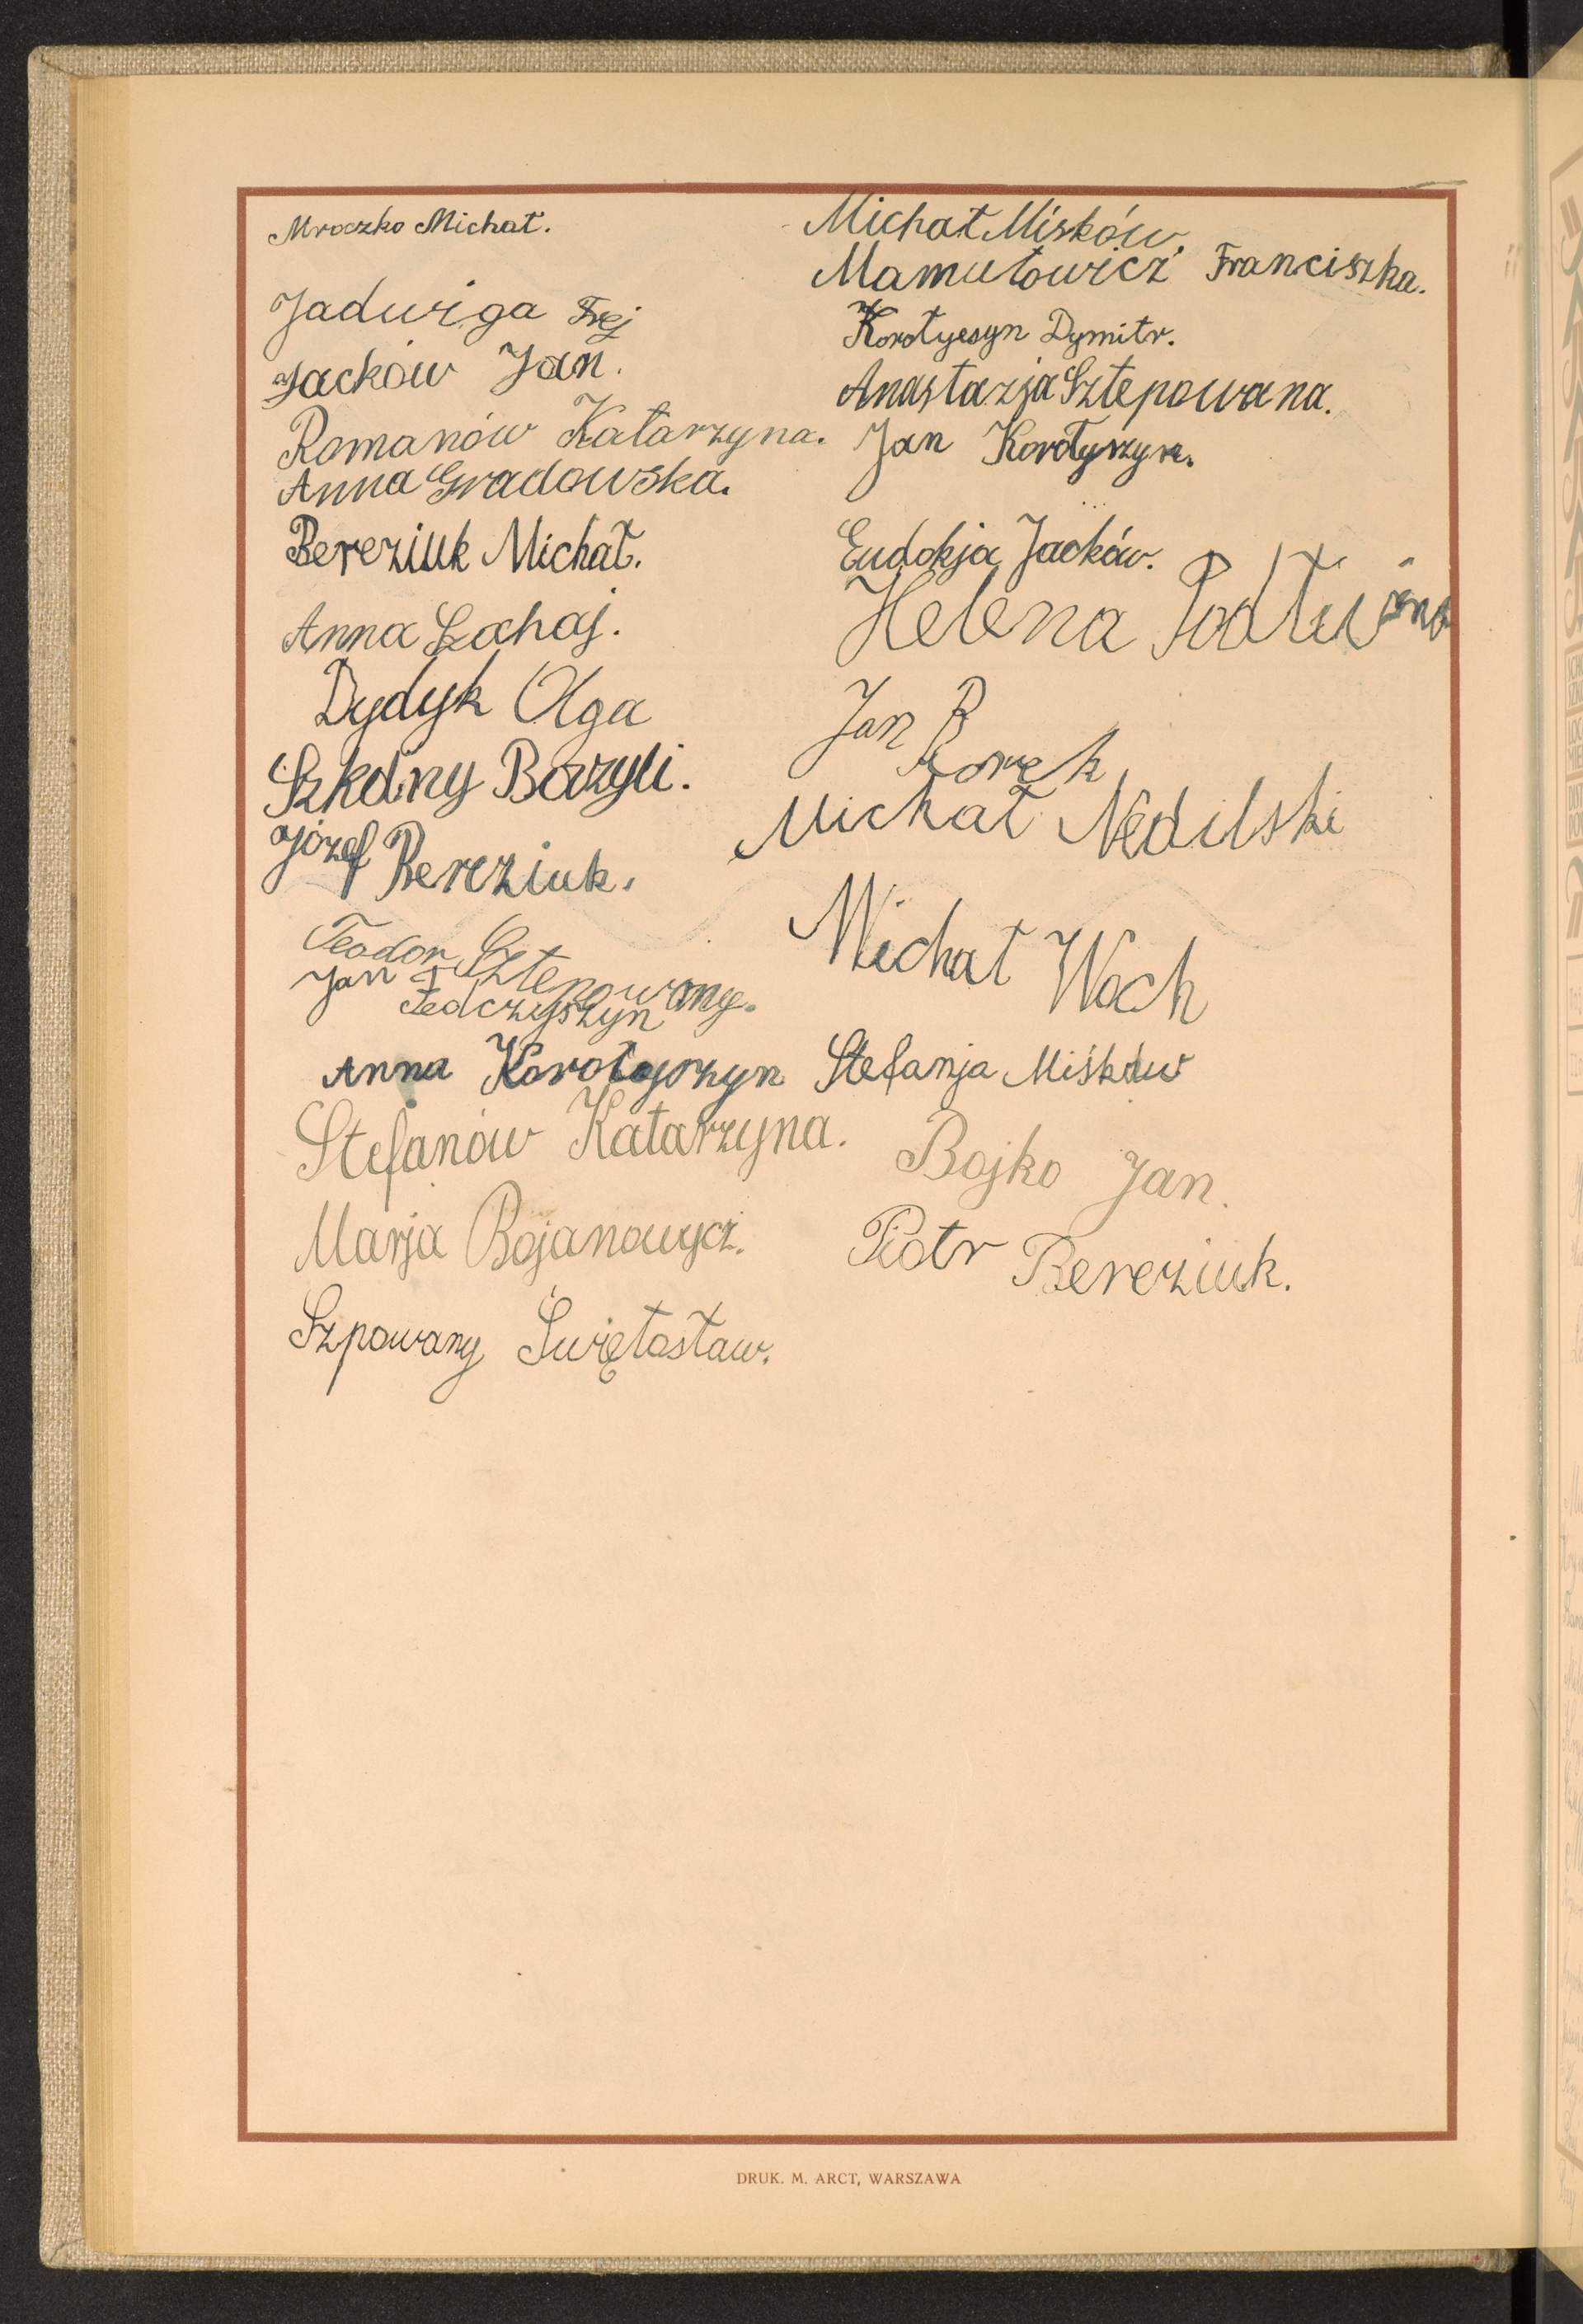 Mroczko Michał.
Jadwiga Frej
Jacków Jan.
Romanów Katarzyna.
Anna Gradowska.
Bereziuk Michał.
Anna Łochaj.
Dydyk Olga
Szkolny Bazyli.
Józef Bereziuk.
Teodor Sztepowany.
Jan Fedczyszyn
Anna Korotyszyn
Stefanów Katarzyna.
Marja Bojanowycz.
Szpowany Świętosław.
Michał Miśków.
Mamutowicz Franciszka.
Korotyesyn Dymitr.
Anastazja Sztepowana.
Jan Korotyszyn.
Eudokja Jacków.
Helena
Jan
Michał Nedilski
Michał Woch
Stefanja Miśków
Bojko Jan.
Piotr Bereziuk.
DRUK. M. ARCT, WARSZAWA